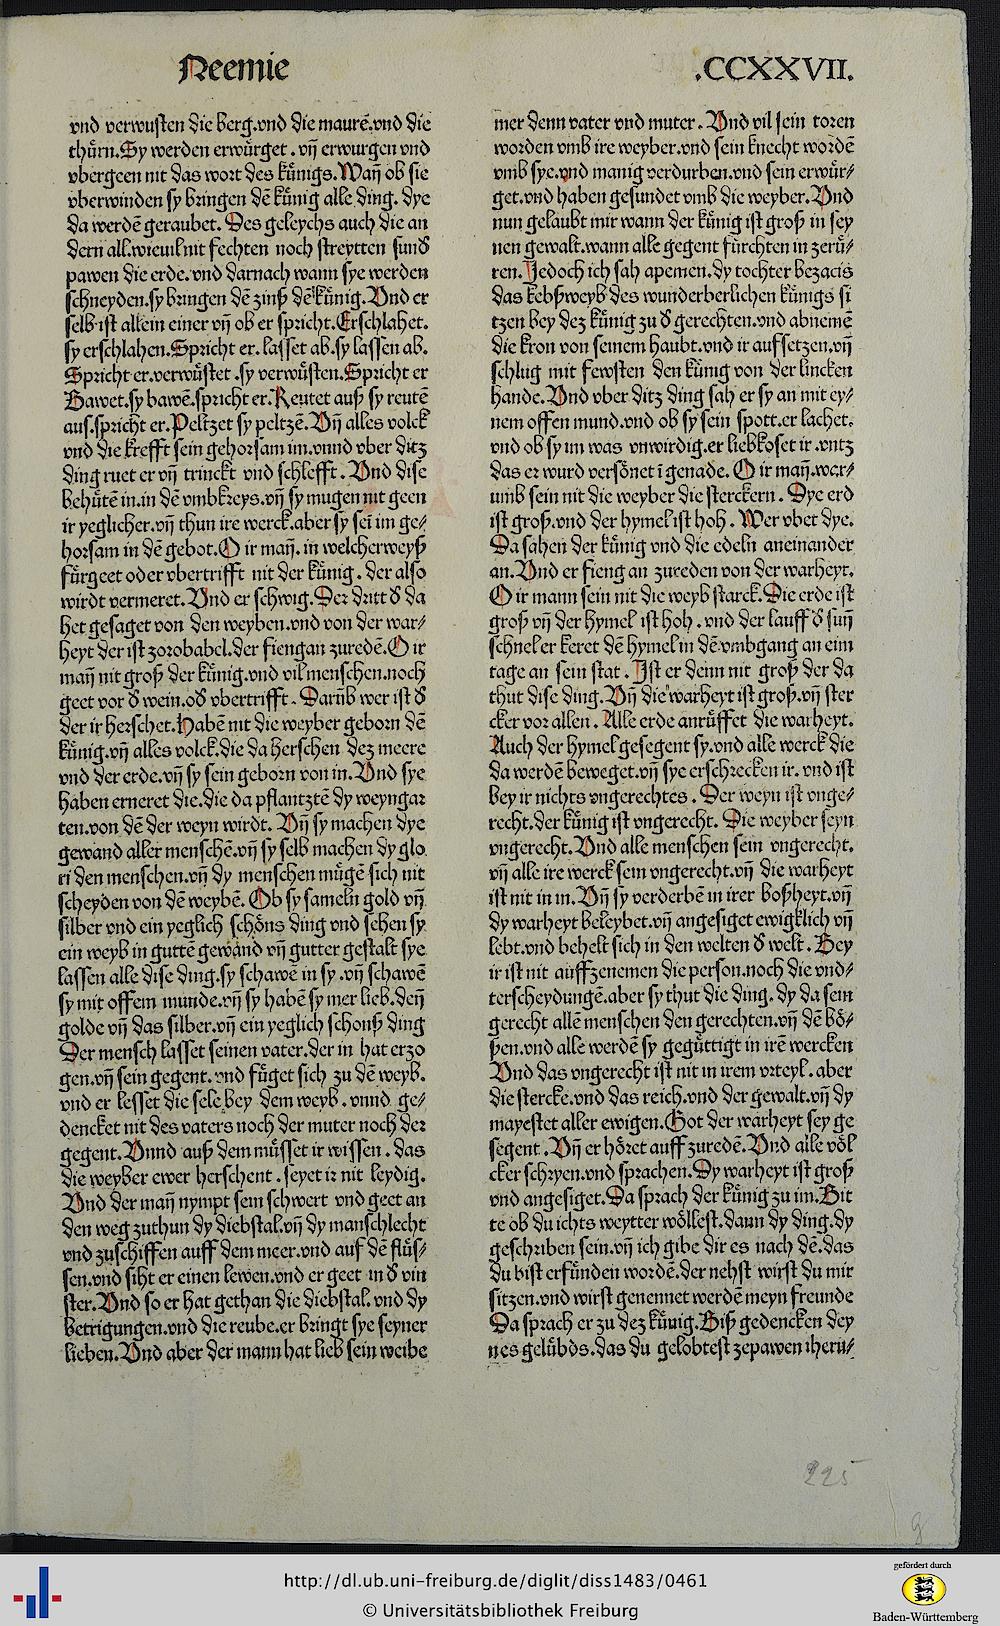 Neemie
.CCXXVII.
vnd verwusten die berg.vnd die maurẽ.vnd die
thürn.Sy werden erwürget . vñ erwurgen vnd
vbergeen nit das wort des künigs.Wañ ob sie
vberwinden sy bringen dẽ künig alle ding. dye
da werdẽ geraubet. Des geleychs auch die an
dern all.wieuil nit fechten noch streytten sund
pawen die erde. vnd darnach wann sye werden
schneyden.sy bringen dẽ zinß dẽ künig.Vnd er
selb ist allein einer vñ ob er spricht.Erschlahet.
sy erschlahen.Spricht er. lasset ab.sy lassen ab.
Spricht er.verwüstet .sy verwüsten.Spricht er
Bawet.sy bawẽ.spricht er.Reutet auß sy reutẽ
aus.spricht er.Peltzet sy peltzẽ.Vñ alles volck
vnd die krefft sein gehorsam im.vnnd vber ditz
ding ruet er vñ trinckt vnd schlefft . Vnd dise
behütẽ in.in dẽ vmbkreys.vñ sy mugen nit geen
ir yeglicher.vñ thun ire werck.aber sy sei im ge⸗
horsam in dẽ gebot.O ir mañ. in welcherweyß
fürgeet oder vbertrifft nit der künig . der also
wirdt vermeret.Vnd er schwig.Der dritt d̕ da
het gesaget von den weyben.vnd von der war⸗
heyt der ist zorobabel.der fiengan zuredẽ.O ir
mañ nit groß der künig.vnd vil menschen.noch
geet vor d̕ wein.od̕ vbertrifft . Darũb wer ist d̕
der ir herschet.Habẽ nit die weyber geborn dẽ
künig.vñ alles volck.die da herschen dez meere
vnd der erde.vñ sy sein geborn von in.Vnd sye
haben erneret die.die da pflantztẽ dy weyngar
ten.von dẽ der weyn wirdt. Vñ sy machen dye
gewand aller menschẽ.vñ sy selb machen dy glo
ri den menschen.vñ dy menschen mügẽ sich nit
scheyden von dẽ weybẽ. Ob sy sameln gold vñ
silber vnd ein yeglich schöns ding vnd sehen sy
ein weyb in guttẽ gewand vñ gutter gestalt sye
lassen alle dise ding.sy schawẽ in sy .vñ schawẽ
sy mit offem munde.vñ sy habẽ sy mer lieb.deñ
golde vñ das silber.vñ ein yeglich schonß ding
Der mensch lasset seinen vater.der in hat erzo
gen.vñ sein gegent. vnd füget sich zu dẽ weyb.
vnd er lesset die sele bey dem weyb . vnnd ge⸗
dencket nit des vaters noch der muter noch der
gegent. Vnnd auß dem müsset ir wissen . das
die weyber ewer herschent . seyet ir nit leydig.
Vnd der mañ nympt sein schwert vnd geet an
den weg zuthun dy diebstal.vñ dy manschlecht
vnd zuschiffen auff dem meer.vnd auf dẽ flüs⸗
sen.vnd siht er einen lewen.vnd er geet in d̕ vin
ster.Vnd so er hat gethan die diebstal. vnd dy
betrigungen.vnd die reube.er bringt sye seyner
lieben.Vnd aber der mann hat lieb sein weibe
mer denn vater vnd muter . Vnd vil sein toren
worden vmb ire weyber.vnd sein knecht wordẽ
vmb sye.vnd manig verdurben.vnd sein erwür⸗
get.vnd haben gesundet vmb die weyber. Vnd
nun gelaubt mir wann der künig ist groß in sey
nen gewalt.wann alle gegent fürchten in zerü⸗
ren. Jedoch ich sah apemen.dy tochter bezacis
das kebßweyb des wunderberlichen künigs si
tzen bey dez künig zu d̕ gerechten.vnd abnemẽ
die kron von seinem haubt.vnd ir aufsetzen.vñ
schlug mit fewsten den künig von der lincken
hande. Vnd vber ditz ding sah er sy an mit ey⸗
nem offen mund.vnd ob sy sein spott.er lachet.
vnd ob sy im was vnwirdig.er liebkoset ir .vntz
das er wurd versönet ĩ genade. O ir mañ.war⸗
umb sein nit die weyber die sterckern . Dye erd
ist groß.vnd der hymel ist hoh . Wer vbet dye.
Da sahen der künig vnd die edeln aneinander
an.Vnd er fieng an zureden von der warheyt.
O ir mann sein nit die weyb starck.Die erde ist
groß vñ der hymel ist hoh . vnd der lauff d̕ suñ
schnel er keret dẽ hymel in dẽ vmbgang an eim
tage an sein stat . Ist er denn nit groß der da
thut dise ding. Vñ die warheyt ist groß.vñ ster
cker vor allen . Alle erde anrüffet die warheyt.
Auch der hymel gesegent sy.vnd alle werck die
da werdẽ beweget.vñ sye erschrecken ir. vnd ist
bey ir nichts vngerechtes . Der weyn ist vnge⸗
recht.der künig ist vngerecht. Die weyber seyn
vngerecht. Vnd alle menschen sein vngerecht.
vñ alle ire werck sein vngerecht.vñ die warheyt
ist nit in in. Vñ sy verderbẽ in irer boßheyt.vñ
dy warheyt beleybet.vñ angesiget ewigklich vñ
lebt.vnd behelt sich in den welten d̕ welt . Bey
ir ist nit auffzenemen die person.noch die vnd⸗
terscheydungẽ.aber sy thut die ding. dy da sein
gerecht allẽ menschen den gerechten.vñ dẽ bö⸗
ßen.vnd alle werdẽ sy gegüttigt in irẽ wercken
Vnd das vngerecht ist nit in irem vrteyl . aber
die stercke.vnd das reich.vnd der gewalt.vñ dy
mayestet aller ewigen. Got der warheyt sey ge
segent . Vñ er höret auff zuredẽ.Vnd alle völ
cker schryen.vnd sprachen.Dy warheyt ist groß
vnd angesiget.Da sprach der künig zu im.Bit
te ob du ichts weytter wöllest.dann dy ding.dy
geschriben sein.vñ ich gibe dir es nach dẽ.das
du bist erfunden wordẽ.der nehst wirst du mir
sitzen.vnd wirst genennet werdẽ meyn freunde
Da sprach er zu dez künig.Biß gedencken dey
nes gelübds.das du gelobtest zepawen iheru⸗
225
http://dl.ub.uni-freiburg.de/diglit/diss1483/0461
© Universitätsbibliothek Freiburg
gefördert durch
Baden-Württemberg